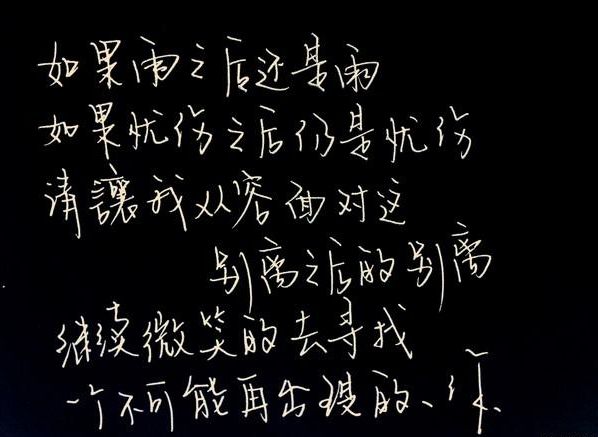 如果雨之后还是雨
如果忧伤之后仍是忧伤
请讓我从容面对这
别离之后的别离
继续微笑的去寻找
一个不可能再出现的、你、